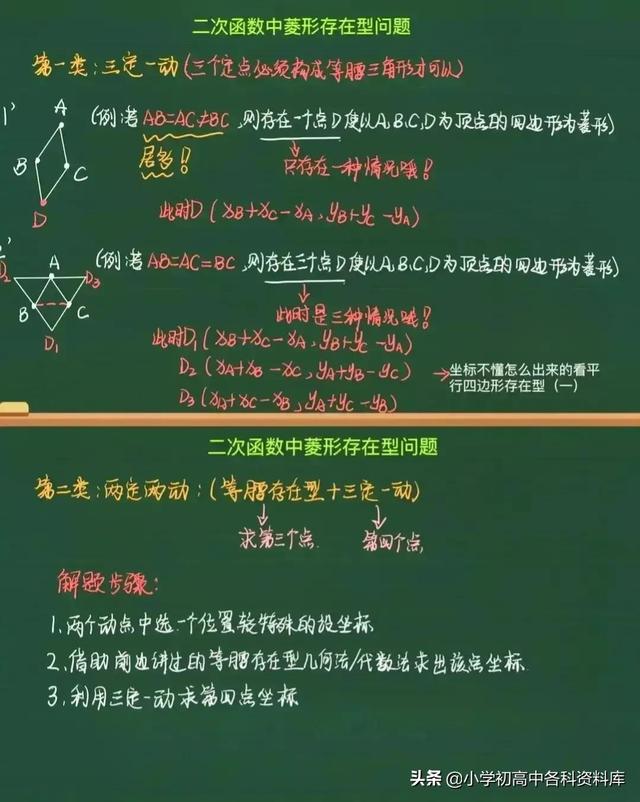 二次函数中菱形存在型问题
第一类:三定一动(三个定点必须构成等腰三角形才可以)
1'
A
B
C
D
(例:若 AB=AC≠BC,则存在一个点D使以A,B,C,D为顶点的四边形为菱形)
居多!
只存在一种情况哦!
此时D(xB+xC-xA,yB+yC-yA)
A
D2
D3
B
C
D1
(例:若 AB=AC=BC,则存在三个点D使以A,B,C,D为顶点的四边形为菱形)
此时是三种情况哦?
此时D1(xB+xC-xA,yB+yC-yA)
D2(xA+xB-xC,yA+yB-yC)
D3(xA+xC-xB,yA+yC-yB)
坐标不懂怎么出来的看平
行四边形存在型(一)
二次函数中菱形存在型问题
第二类:两定两动:(等腰存在型+三定一动)
求第三个点
第四个点
解题步骤:
1.两个动点中选一个位置较特殊的设坐标
2.借助前边讲过的等腰存在型几何法/代数法求出该点坐标
3.利用三定一动求第四点坐标
头条@小学初高中各科资料库